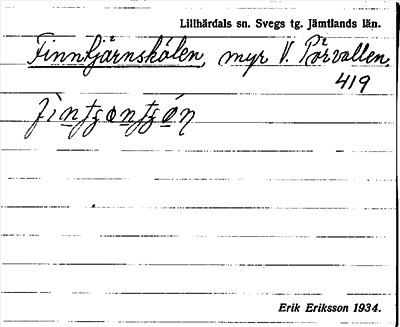 Lillhärdals sn. Svegs tg. Jämtlands län.
Finntjärnskölen, myr V. Pörvallen.
419
Erik Eriksson 1934.